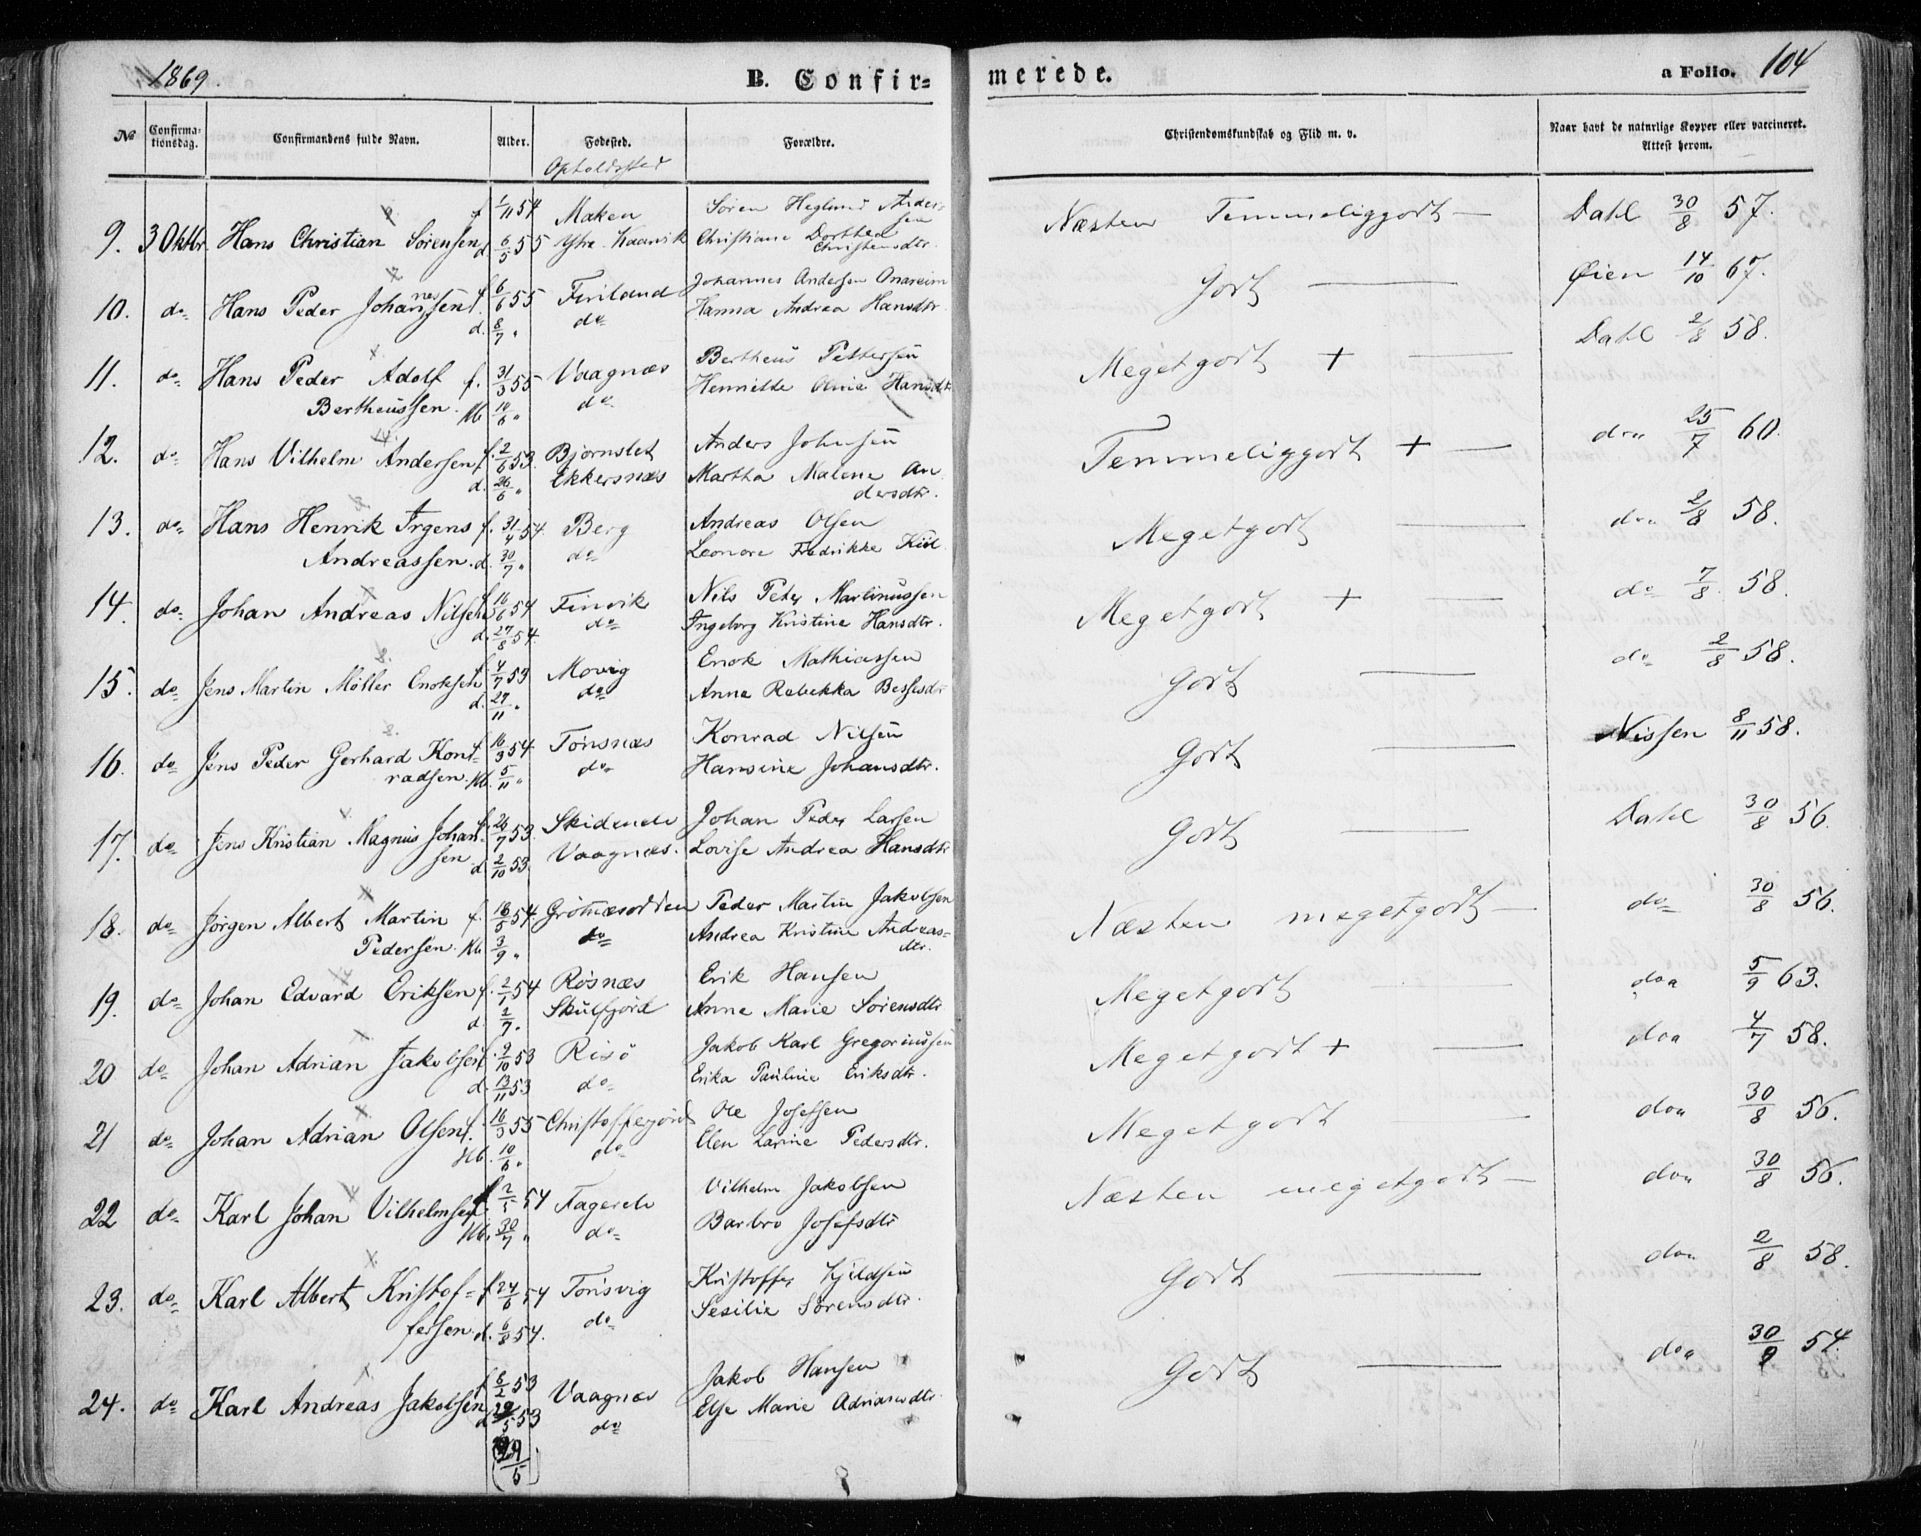 1869.
B. Confir=
merede.
a Folio. 104
No
Confirma-
tionsdag.
Confirmandens fulde Navn.
Alder.
Fødested.
Opholdssted
Forældre.
Christendomskundskab og Flid m. v.
Naar havt de naturlige Kopper eller vaccineret.
Attest herom.
9. 3 Oktbr. Hans Christian Sørensen f. 1/11 54 d. 6/5 55 Maken Ytre Kaarvik Søren Heglund Andersen Christiane Dorthea Christensdtr. Næsten Temmeliggodt — Dahl 30/8 57.
10. do Hans Peder Johannessen f. 6/6 55 d. 8/7 " Finland do Johannes Andersen Hanna Andrea Hansdtr Godt — Øien 14/10 67.
11. do Hans Peder Adolf Bertheussen f. 31/3 55 Hb. 10/6 " Vaagnæs do Bertheus Pettersen Henrikke Oline Hansdtr Megetgodt + — Dahl 2/8 58.
12. do Hans Vilhelm Andersen f. 2/6 53. d. 26/6 " Bjørnslet Ekkersnæs Anders Johnsen Martha Malene Andersdtr. Temmeliggodt + — do 25/7 60.
13. do Hans Henrik Irgens Andreassen f. 31/4 54. d. 30/7 " Berg do Andreas Olsen Leonore Fredrikke Kiil Megetgodt — do 2/8 58.
14. do Johan Andreas Nilsen f. 16/6 54 d. 27/8 54. Finvik do Nils Peter Martinussen Ingeborg Kristine Hansdtr. Megetgodt + — do 7/8 58.
15. do Jens Martin Møller Enoksen f. 4/7 53 d. 27/11 " Movig do Enok Mathiassen Anne Rebekka Bessesdtr Godt — do 2/8 58.
16. do Jens Peder Gerhard Konradsen f. 16/9 54. Hb. 5/11 " Tønsnæs do Konrad Nilsen Hansine Johansdtr. Godt — Nissen 8/11 58.
17. do Jens Kristian Magnus Johansen f. 26/7 53. d. 2/10 53. Skidnele Vaagnæs. Johan Peder Larsen Lovise Andrea Hansdtr Godt — Dahl 30/8 56.
18. do Jørgen Albert Martin Pedersen f. 18/5 54. Hb. 3/9 " Grøtnæsodden do Peder Martin Jakobsen Andrea Kristine Andreas= dtr. Næsten megetgodt — do 30/8 56.
19. do Johan Edvard Eriksen f. 2/1 54 d. 2/7 " Røsnæs Skulfjord Erik Hansen Anne Marie Sørensdtr Megetgodt — do 5/9 63.
20 do Johan Adrian Jakobsen f. 9/10 53 d. 13/11 53 Risø do Jakob Karl Gregoriussen Erika Pauline Eriksdtr. Megetgodt + — do 4/7 58.
21 do Johan Adrian Olsen f. 16/3 55 Hb. 10/6 " Christofferjord do Ole Josefsen Elen Larine Pedersdtr. Megetgodt — do 30/8 56.
22 do Karl Johan Vilhelmsen f. 2/5 54 Hb. 30/7 " Fagerele do Vilhelm Jakobsen Barbro Josefsdtr Næsten megetgodt — do 30/8 56.
23. do Karl Albert Kristof= fersen f. 24/6 54 d. 6/8 54. Tønsvig do Kristoffer Kjeldsen Sesilie Sørensdtr. Godt — do 2/8 58.
24. do Karl Andreas Jakobsen f. 8/2 53 d. 29/5 53 (29/5) Vaagnæs do Jakob Hansen Else Marie Adriansdtr. Godt — do 30/9 54.